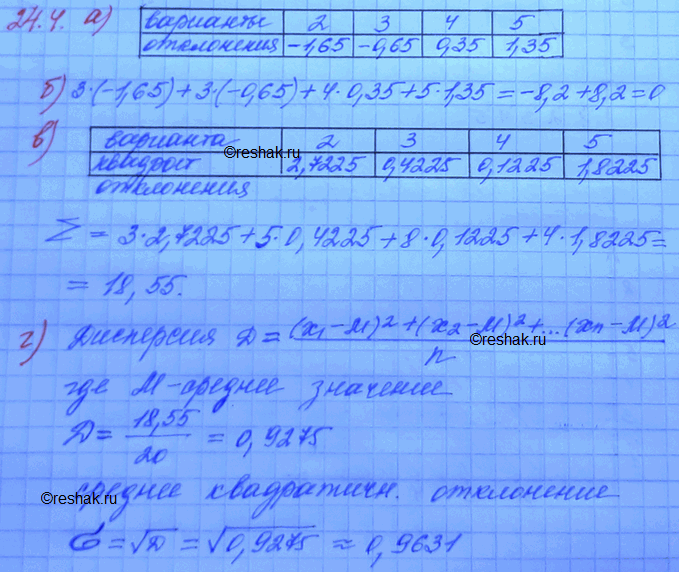 24.4. а) варианты 2 3 4 5
отклонения -1,65 -0,65 0,35 1,35
б) 3·(-1,65)+3·(-0,65)+4·0,35+5·1,35=-8,2+8,2=0
в) варианта 2 3 4 5
квадрат 2,7225 0,4225 0,1225 1,8225
©reshak.ru
отклонения
Σ = 3·2,7225+5·0,4225+8·0,1225+4·1,8225=
= 18,55.
г) Дисперсия D = (x₁-M)²+(x₂-M)²+...(xn-M)² / n
©reshak.ru
где M-среднее значение
D = 18,55 / 20 = 0,9275
среднее квадратичн. отклонение
©reshak.ru
σ = √D = √0,9275 ≈ 0,9631